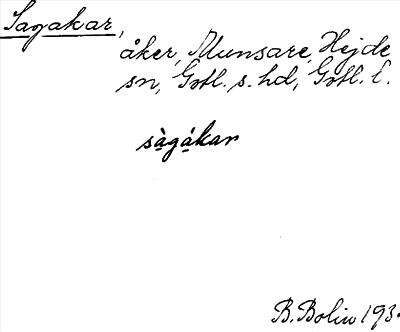 Sagakar,
åker, Munsare, Hejde
sn, Gotl. s. hd, Gotl. l.
sàgákar
B. Bolin 193.